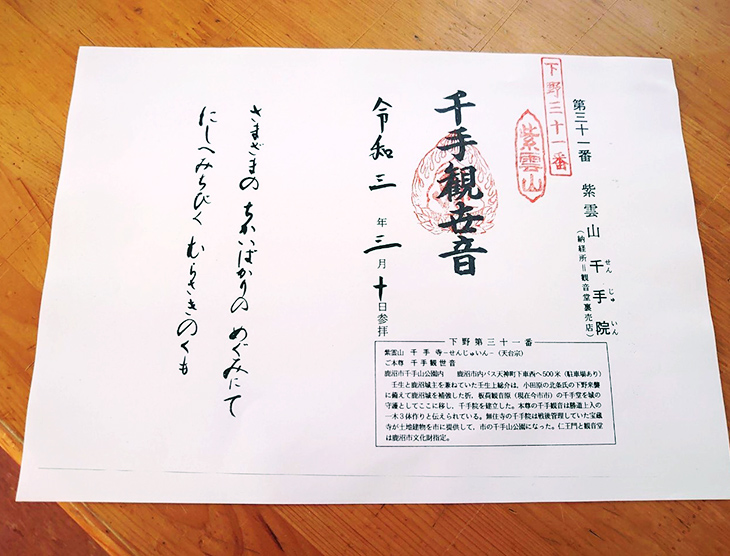 下野三十一番
紫雲山
第三十一番　紫雲山　千手院
せんじゅいん
（納経所＝観音堂裏売店）
千手観世音
令和三年三月十日参拝
さまざまの　ちかいばかりの　めぐみにて
にしへみちびく　むらさきのくも
下野第三十一番
紫雲山　千手寺－せんじゅいん－（天台宗）
ご本尊　千手観世音
鹿沼市千手山公園内　鹿沼市内バス天神町下車西へ500m（駐車場あり）
壬生と鹿沼城主を兼ねていた壬生上総介は、小田原の北条氏の下野来襲
に備えて鹿沼城を補強した折、板荷観音原（現在今市市）の千手堂を城の
守護としてここに移し、千手院を建立した。本尊の千手観音は勝道上人の
一木３体作りと伝えられている。無住寺の千手院は戦後管理していた宝蔵
寺が土地建物を市に提供して、市の千手山公園になった。仁王門と観音堂
は鹿沼市文化財指定。